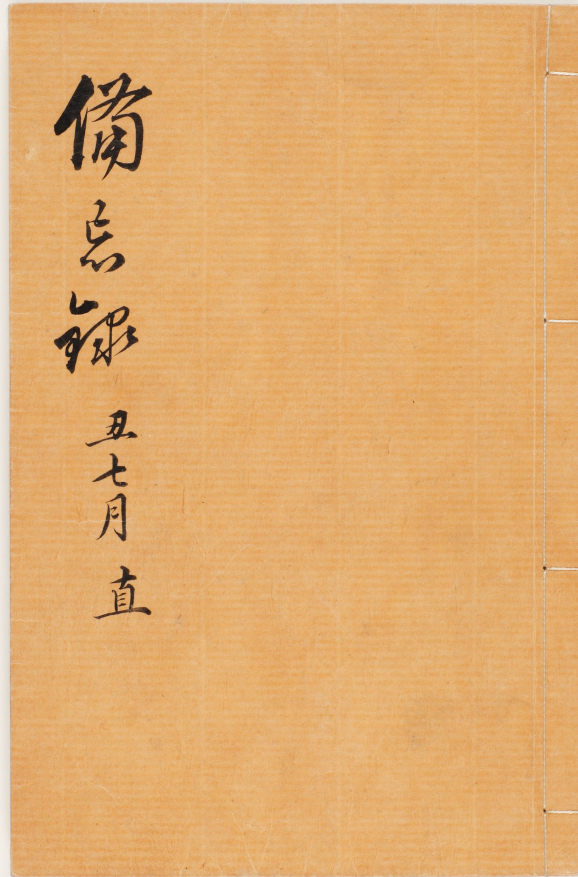 備忘録 丑七月 直